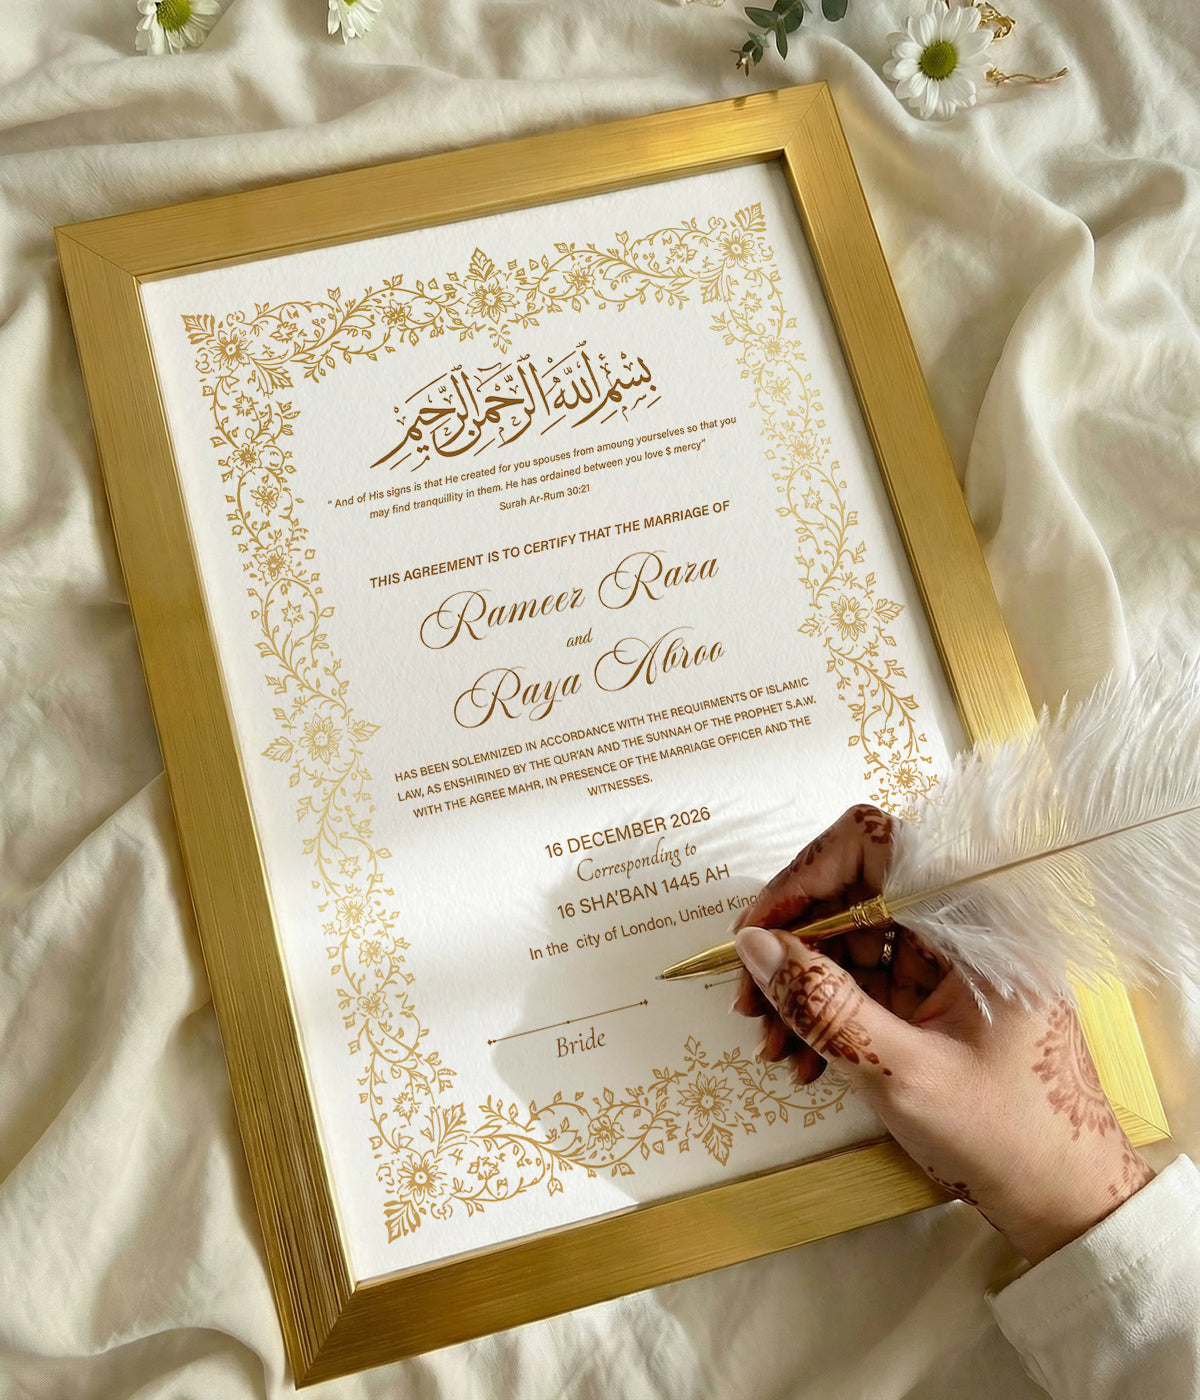 بِسْمِ اللَّهِ الرَّحْمَنِ الرَّحِيمِ
" And of His signs is that He created for you spouses from amoung yourselves so that you
may find tranquillity in them. He has ordained between you love $ mercy"
Surah Ar-Rum 30:21
THIS AGREEMENT IS TO CERTIFY THAT THE MARRIAGE OF
Rameez Raza
and
Raya Abroo
HAS BEEN SOLEMNIZED IN ACCORDANCE WITH THE REQUIRMENTS OF ISLAMIC
LAW, AS ENSHIRINED BY THE QUR'AN AND THE SUNNAH OF THE PROPHET S.A.W.
WITH THE AGREE MAHR, IN PRESENCE OF THE MARRIAGE OFFICER AND THE
WITNESSES.
16 DECEMBER 2026
Corresponding to
16 SHA'BAN 1445 AH
In the city of London, United King
Bride